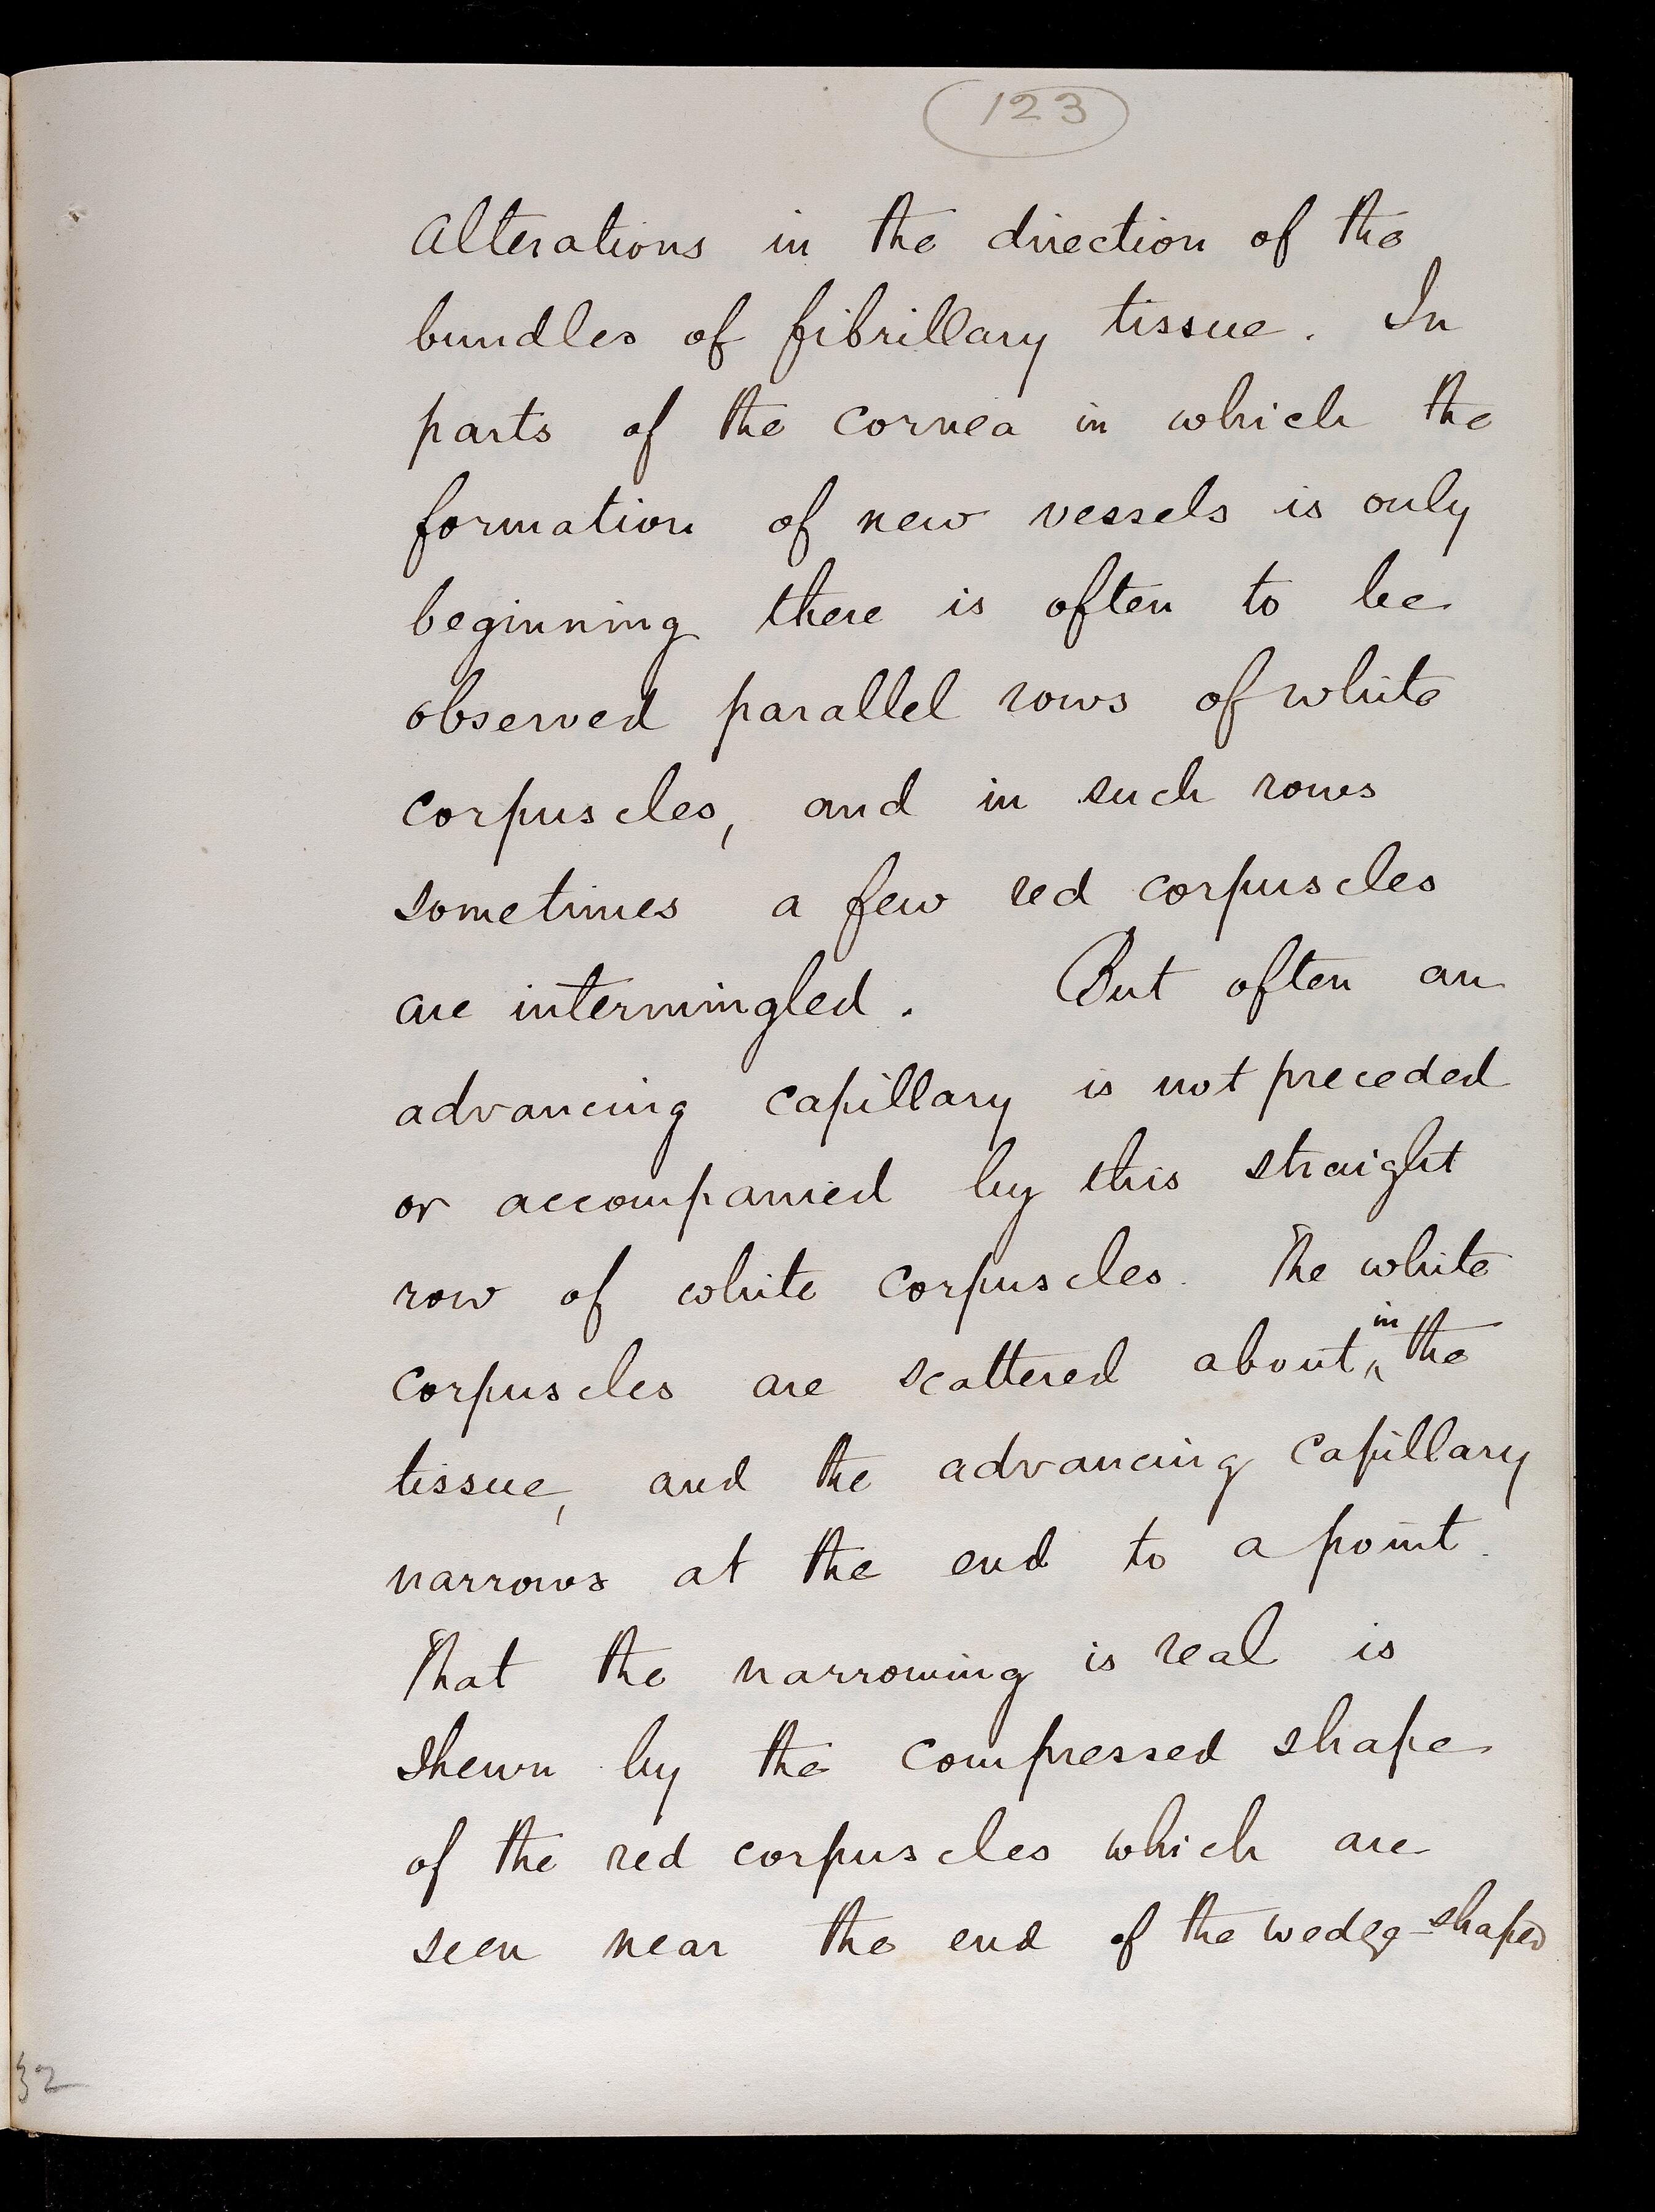 123
Alterations in the direction of the
bundles of fibrillary tissue. In
parts of the cornea in which the
formation of new vessels is only
beginning there is often to be
observed parallel rows of white
corpuscles, and in such rows
sometimes a few red corpuscles
are intermingled. But often an
advancing capillary is not preceded
or accompanied by this straight
row of white corpuscles. The white
in
corpuscles are scattered about the
tissue, and the advancing capillary
narrows at the end to a point.
That the narrowing is real is
shewn by the compressed shape
of the red corpuscles which are
seen near the end of the wedeg-shaped
32